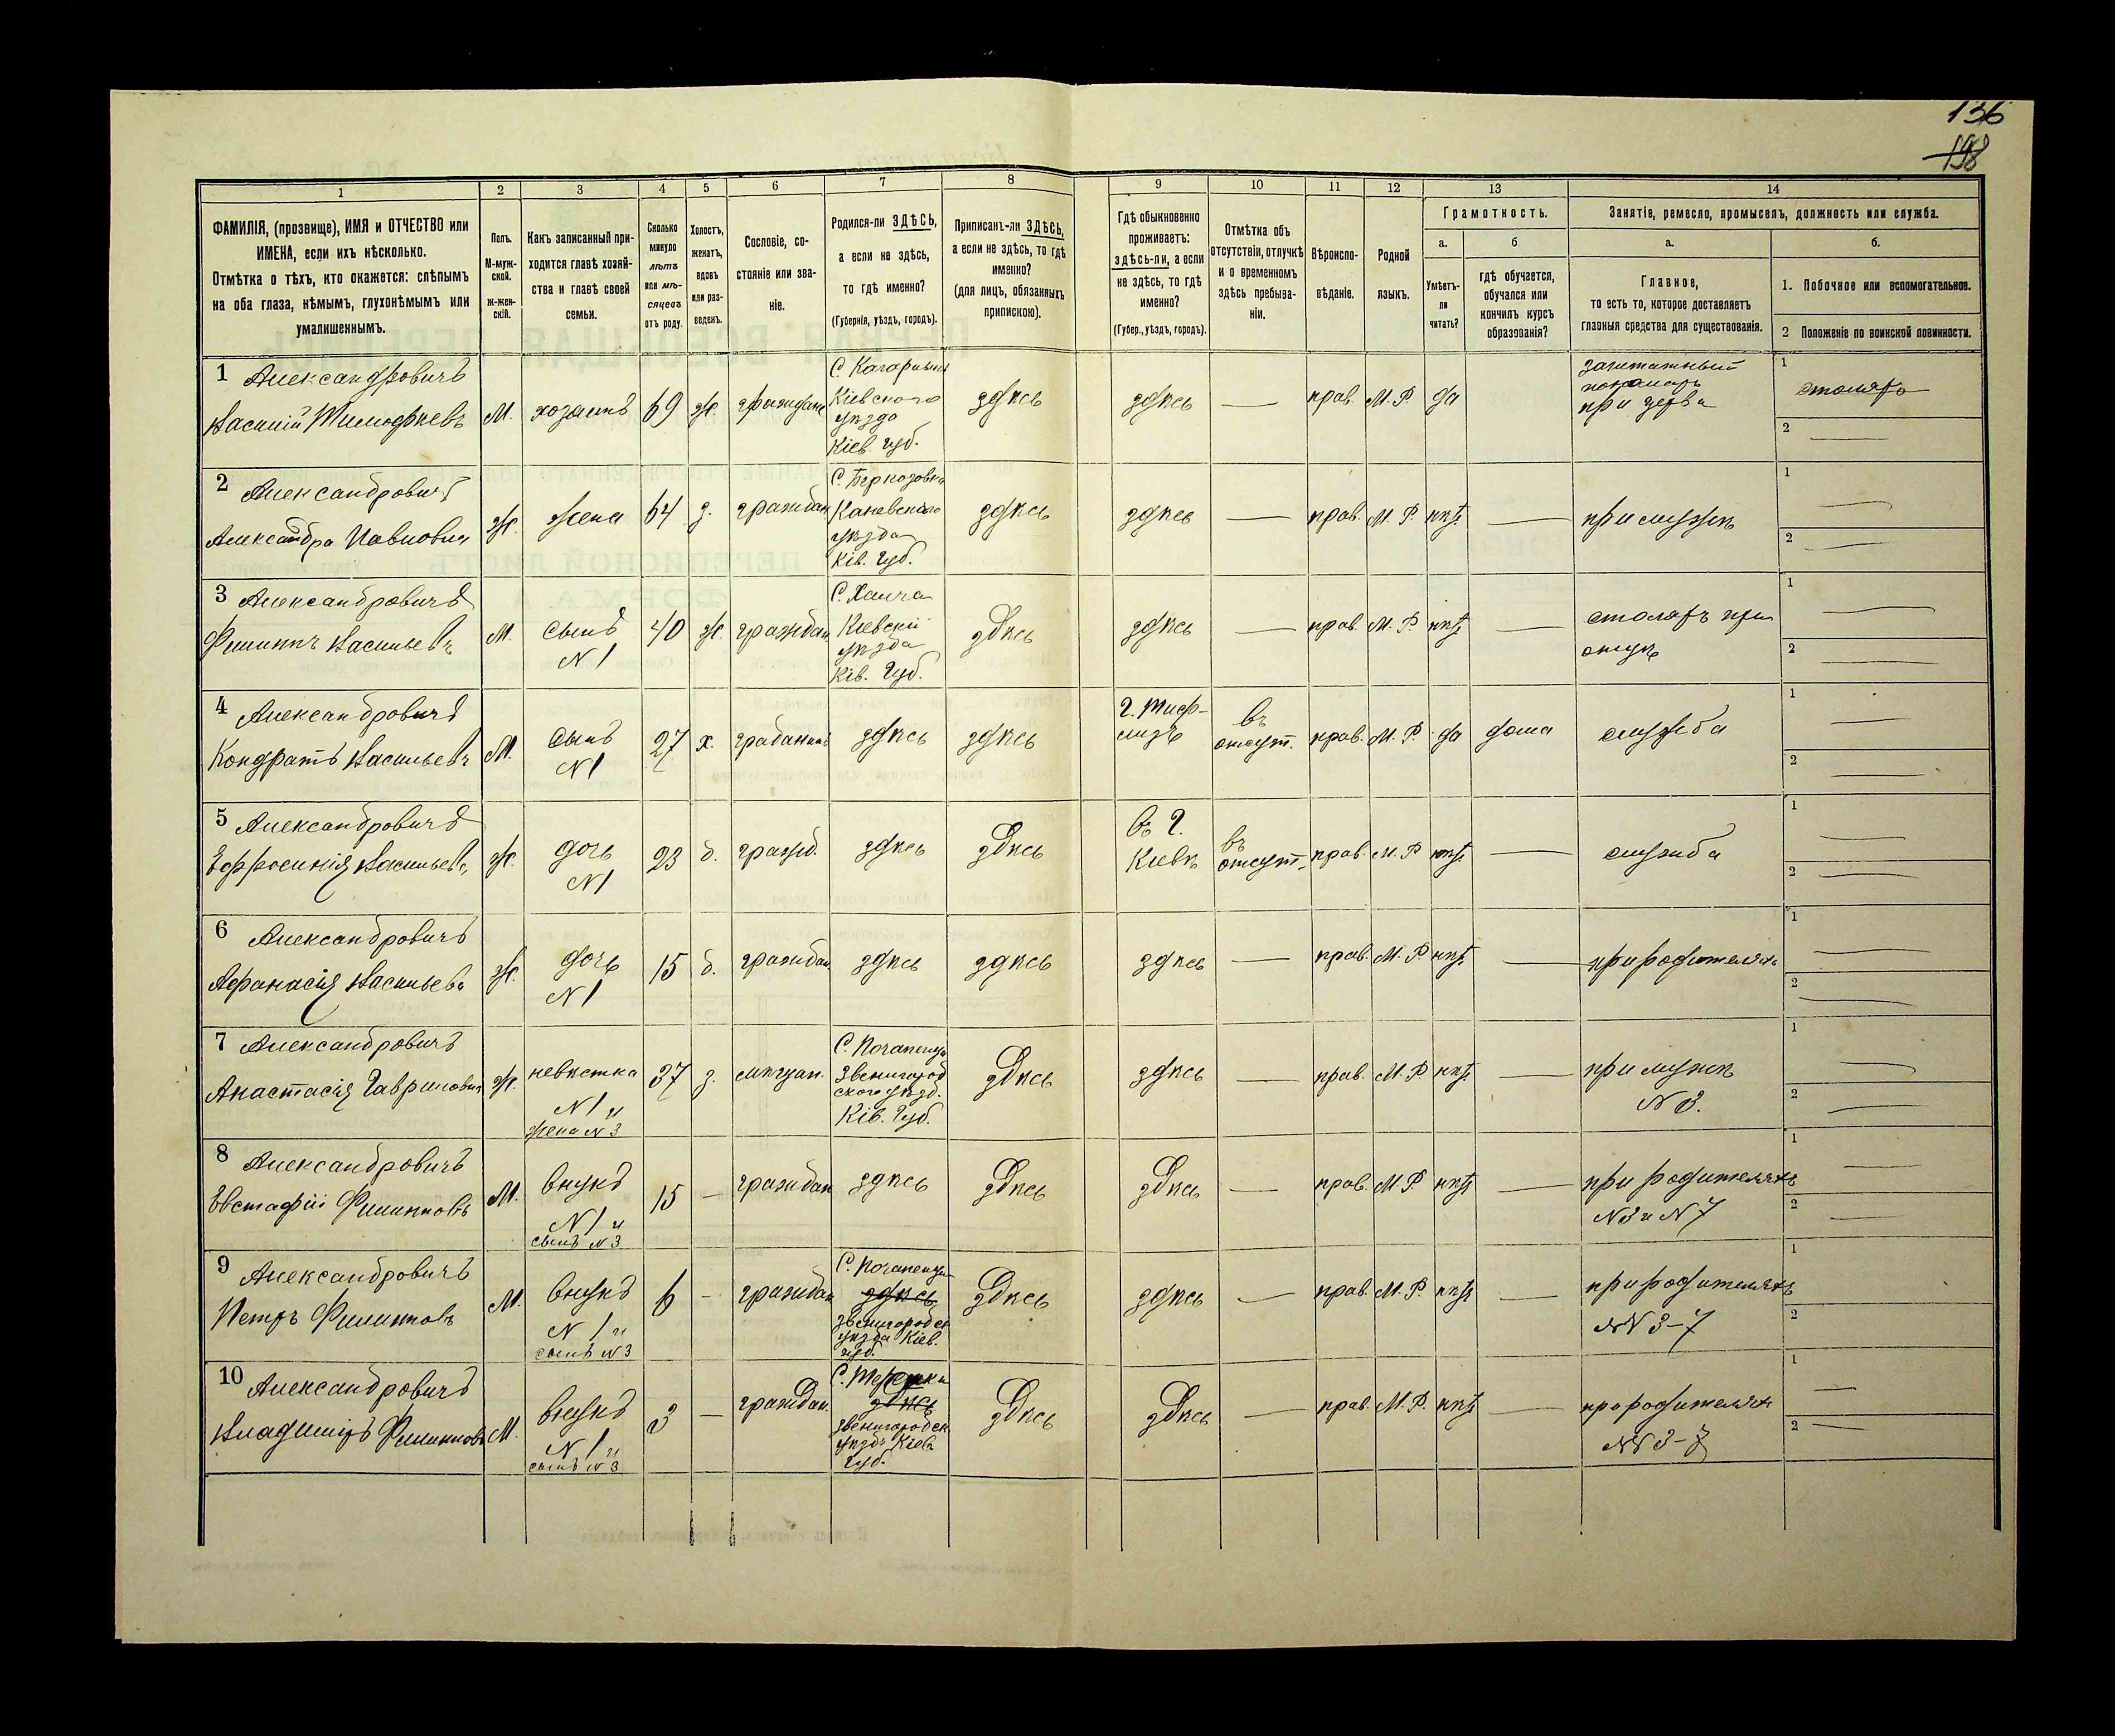 136
198
1
2
3
4
5
6
7
8
9
10
11
12
13
14
ФАМИЛІЯ, (прозвище), ИМЯ и ОТЧЕСТВО или
ИМЕНА, если ихъ нѣсколько.
Отмѣтка о тѣхъ, кто окажется: слѣпымъ
на оба глаза, нѣмымъ, глухонѣмымъ или
умалишеннымъ.
Полъ.
М-муж-
ской.
ж-жен-
скій.
Какъ записанный при-
ходится главѣ хозяй-
ства и главѣ своей
семьи.
Сколько
минуло
лѣтъ
или мѣ-
сяцевъ
отъ роду.
Холостъ,
женатъ,
вдовъ
или раз-
веденъ.
Сословіе, со-
стояніе или зва-
ніе.
Родился-ли ЗДѢСЬ,
а если не здѣсь,
то гдѣ именно?
(Губернія, уѣздъ, городъ).
Приписанъ-ли ЗДѢСЬ,
а если не здѣсь, то гдѣ
именно?
(для лицъ, обязанныхъ
припискою).
Гдѣ обыкновенно
проживаетъ:
здѣсь-ли, а если
не здѣсь, то гдѣ
именно?
(Губер., уѣздъ, городъ).
Отмѣтка объ
отсутствіи, отлучкѣ
и о временномъ
здѣсь пребыва-
ніи.
Вѣроиспо-
вѣданіе.
Родной
языкъ.
Грамотность.
а.
Умѣетъ-
ли
читать?
б
гдѣ обучается,
обучался или
кончилъ курсъ
образованія?
Занятіе, ремесло, промыселъ, должность или служба.
а.
Главное,
то есть то, которое доставляетъ
главныя средства для существованія.
б.
1. Побочное или вспомогательное.
2 Положеніе по воинской повинности.
1 Александровичъ
Василій Тимофѣевъ
М.
хозяинъ
69
ж.
С. Кагарлыкъ
Кіевского
уѣзда
Кіев. губ.
здѣсь
здѣсь
—
прав.
М. Р.
да
заштатный
пономарь
при
1
столяръ
2
—
2 Александровичъ
Александра Павловна
Ж.
жена
64
з.
граждан.
С. Беркозовка
Каневского
уѣзда
Ків. Губ.
здѣсь
здѣсь
—
прав.
М. Р.
нѣтъ
—
при мужѣ
1
—
2
—
3 Александровичъ
Филиппъ Васильевъ
М.
сынъ
N 1
40
ж.
граждан.
С.
Кіевскій
уѣзда
Ків. Губ.
здѣсь
здѣсь
—
прав.
М. Р.
нѣтъ
—
столяръ при
отцѣ
1
—
2
—
4 Александровичъ
Кондратъ Васильевъ
М.
сынъ
N 1
27
х.
здѣсь
здѣсь
г. Тиф-
лисъ
въ
отсут.
прав.
М. Р.
да
дома
служба
1
—
2
—
5 Александровичъ
Ефросинія Васильева
Ж.
дочь
N 1
23
д.
гражд.
здѣсь
здѣсь
въ г.
Кіевѣ
въ
отсут.
прав.
М. Р.
нѣтъ
—
служба
1
—
2
—
6 Александровичъ
Афанасія Васильева
Ж.
дочь
N 1
15
д.
граждан.
здѣсь
здѣсь
здѣсь
—
прав.
М. Р.
нѣтъ
—
при родителяхъ
1
—
2
—
7 Александровичъ
Анастасія Гавриловна
Ж.
невѣстка
N 1 и
жена N 3
37
з.
мѣщан.
С. Почапенцы
Звенигород
ского уѣзд.
Ків. Губ.
здѣсь
здѣсь
—
прав.
М. Р.
нѣтъ
при мужѣ
N 3.
1
—
2
—
8 Александровичъ
Евстафій Филипповъ
М.
внукъ
N 1 и
сынъ N 3
15
—
граждан
здѣсь
здѣсь
здѣсь
—
прав.
М. Р.
нѣтъ
—
при родителяхъ
N 3 и N 7
1
—
2
—
9 Александровичъ
Петръ Филипповъ
М.
внукъ
N 1 и
сынъ N 3
6
—
граждан
С. Почапенцы
здѣсь
Звенигородск
уѣзда Кіев.
губ.
здѣсь
здѣсь
—
прав.
М. Р.
нѣтъ
—
при родителяхъ
NN 3-7
1
2
10 Александровичъ
Владиміръ Филипповъ
М.
внукъ
N 1 и
сынъ N 3
3
—
граждан.
С.
здѣсь
Звенигородск
уѣздъ Кіев.
Губ.
здѣсь
здѣсь
—
прав.
М. Р.
нѣтъ
—
при родителях
NN 3-7
1
—
2
—